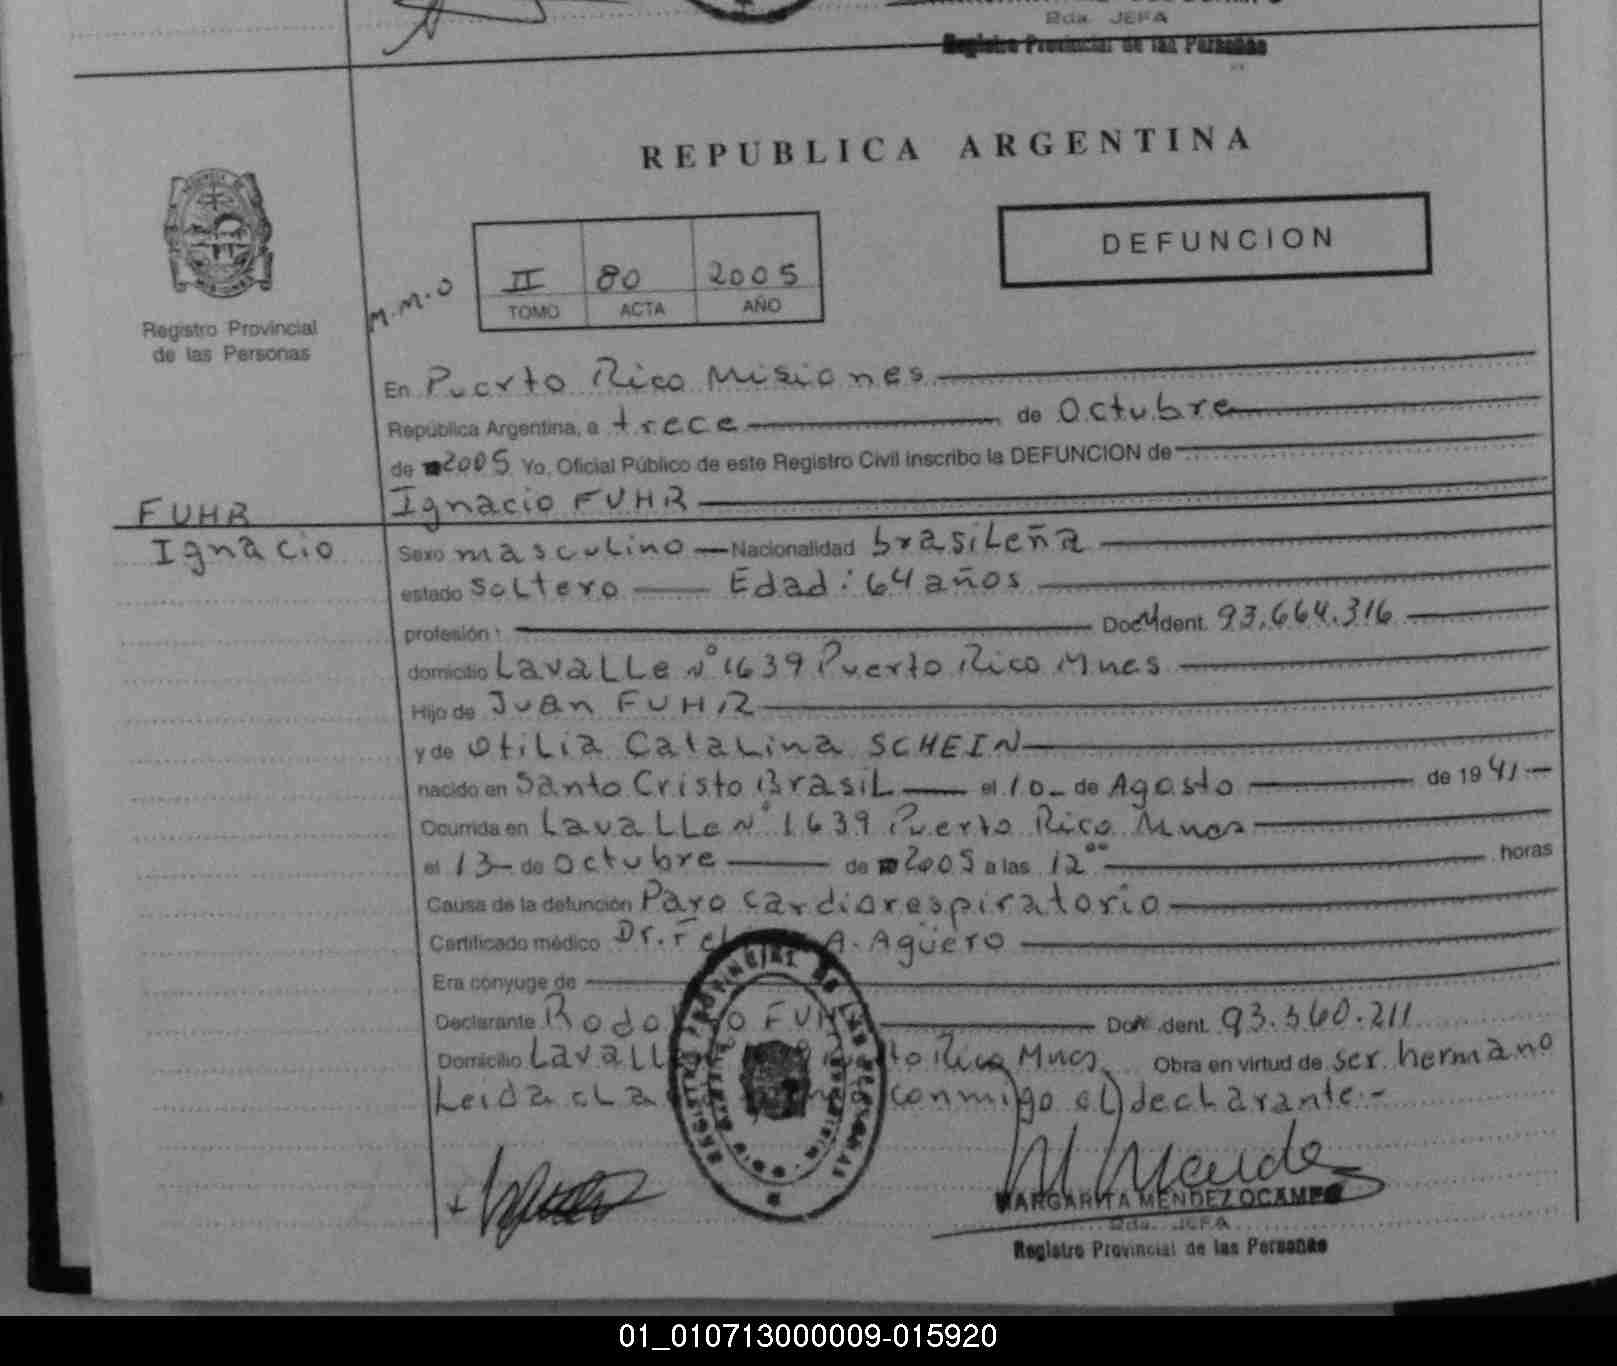 Rda. JEFA
Registro Provincial de las Personas
REPUBLICA ARGENTINA
DEFUNCION
M.M.O
II 80 2005
TOMO ACTA AÑO
Registro Provincial
de las Personas
En Puerto Rico Misiones
República Argentina, a trece de Octubre
de 2005 Yo, Oficial Público de este Registro Civil inscribo la DEFUNCION de
FUHR
Ignacio
Ignacio FUHR
Sexo masculino Nacionalidad brasileña
estado soltero Edad: 64 años
profesión: Doc. Ident. 93.664.316
domicilio Lavalle N° 1639 Puerto Rico Mnes
Hijo de Juan FUHR
y de Otilia Catalina SCHEIN
nacido en Santo Cristo Brasil el 10 de Agosto de 1941.-
Ocurrida en Lavalle N° 1639 Puerto Rico Mnes
el 13 de Octubre de 2005 a las 12°° horas
Causa de la defunción Paro cardiorespiratorio
Certificado médico Dr. A. Agüero
Era cónyuge de
Declarante FUHR Doc. Ident. 93.360.211
Domicilio Lavalle Rico Mnes Obra en virtud de ser hermano
Leida conmigo el declarante.-
REGISTRO PROVINCIAL DE LAS PERSONAS
MARGARITA MENDEZ OCAMPO
Rda. JEFA
Registro Provincial de las Personas
01_010713000009-015920